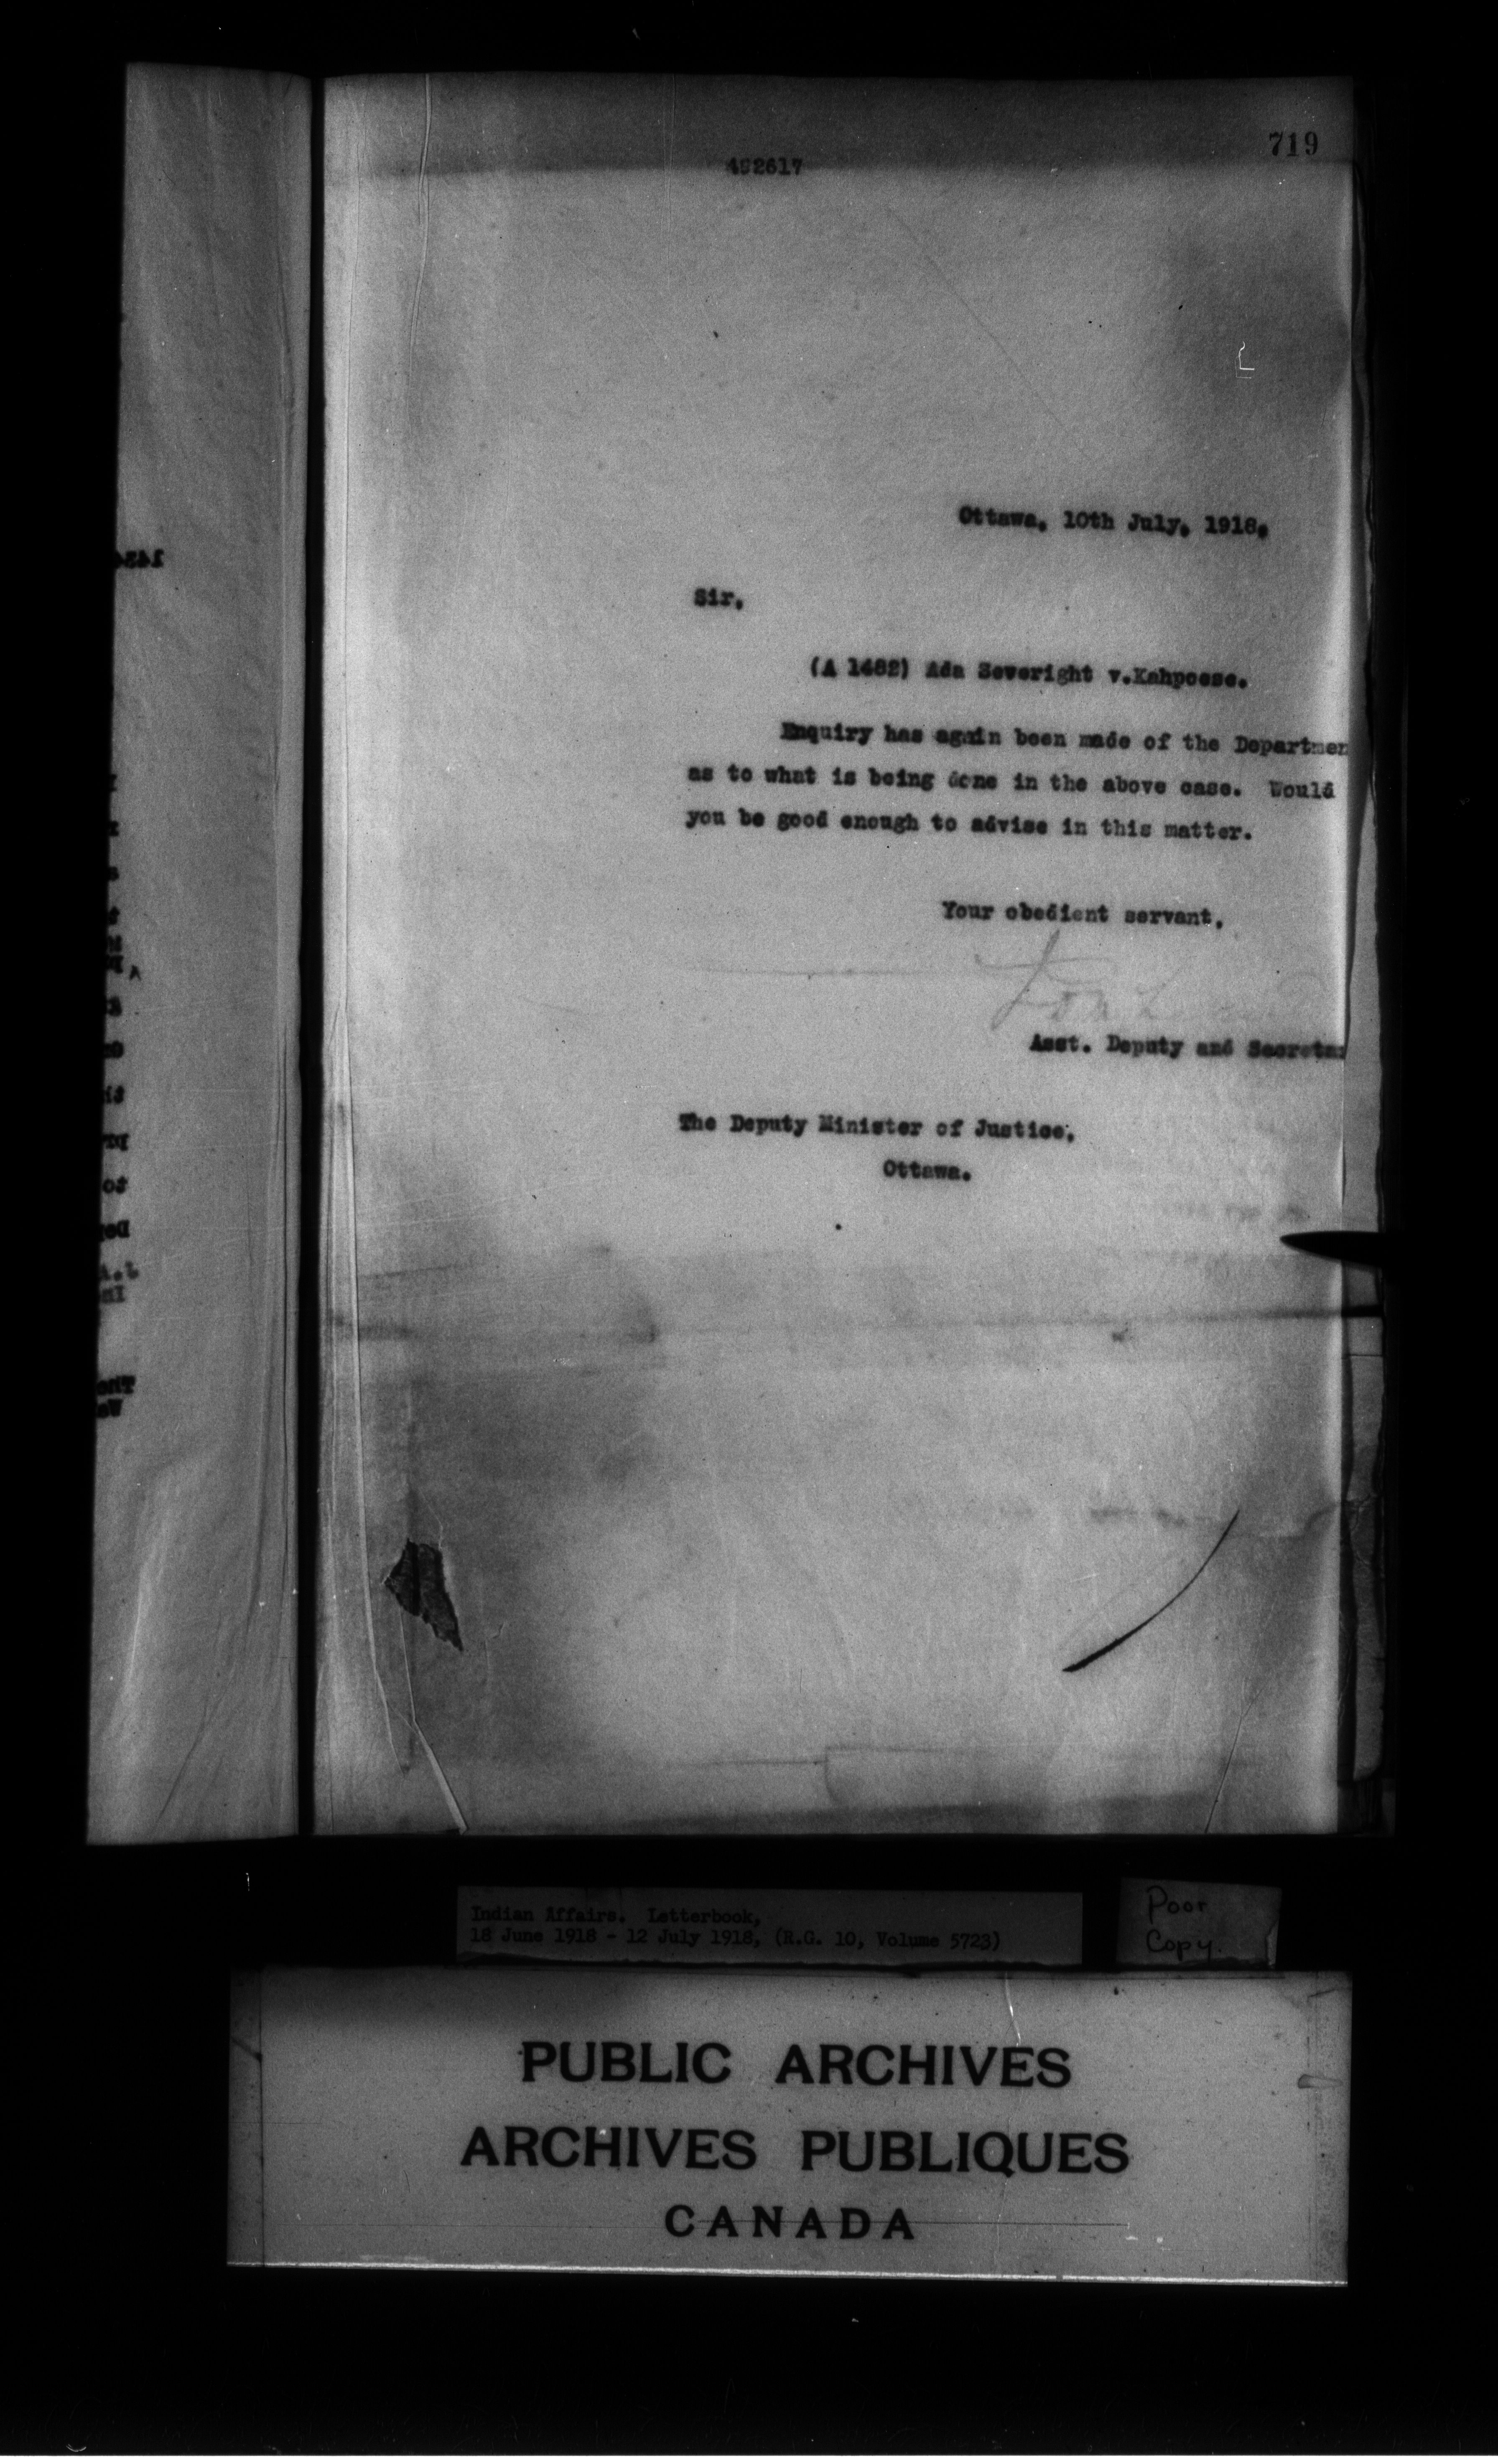 719
492617
Ottawa, 10th July, 1918.
Sir,
(A 1482) Ada Severight v.Kahpoese.
Enquiry has again been made of the Departmen
as to what is being done in the above case. Would
you be good enough to advise in this matter.
Your obedient servant,
Asst. Deputy and Secreta
The Deputy Minister of Justice,
Ottawa.
Indian Affairs. Letterbook,
18 June 1918 - 12 July 1918, (R.G. 10, Volume 5723)
Poor
Copy.
PUBLIC ARCHIVES
ARCHIVES PUBLIQUES
CANADA